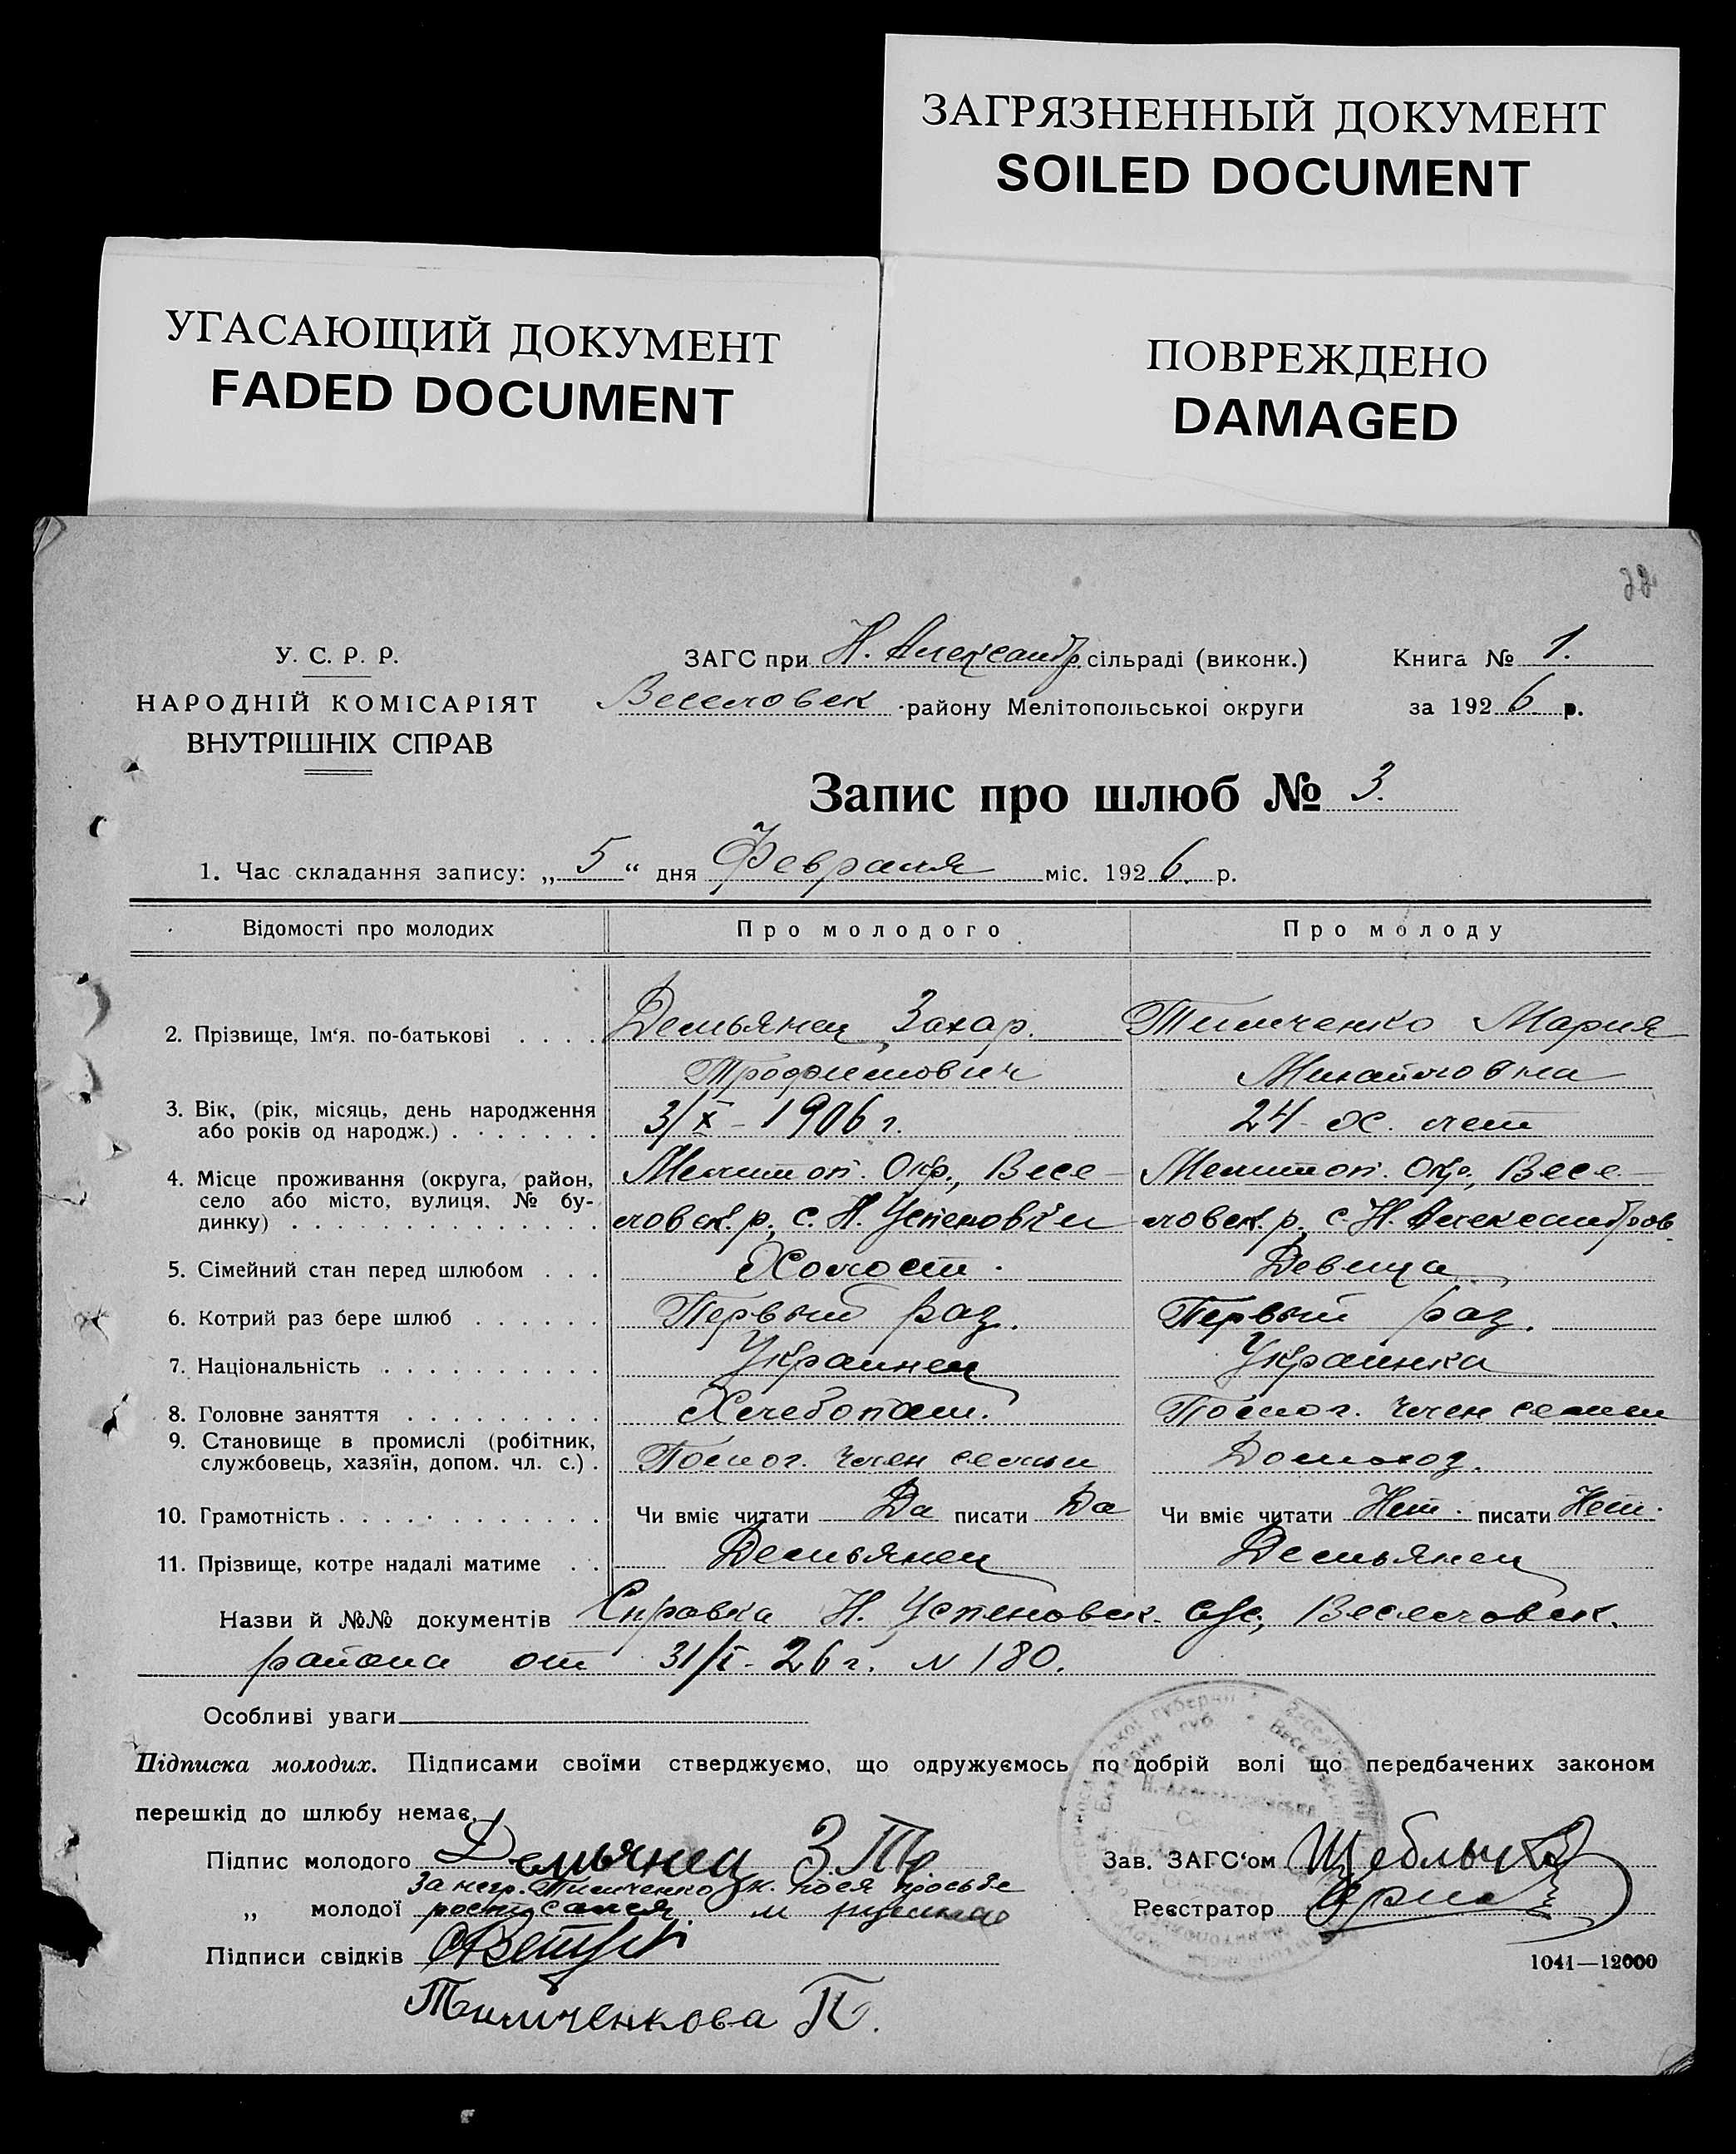 ЗАГРЯЗНЕННЫЙ ДОКУМЕНТ
SOILED DOCUMENT
УГАСАЮЩИЙ ДОКУМЕНТ
FADED DOCUMENT
ПОВРЕЖДЕНО
DAMAGED
У. С. Р. Р.
НАРОДНІЙ КОМІСАРІЯТ
ВНУТРІШНІХ СПРАВ
ЗАГС при Н. Александр. сільраді (виконк.)
Веселовск району Мелітопольської округи
Книга № 1.
за 1926 р.
Запис про шлюб № 3.
1. Час складання запису: „5“ дня Февраля міс. 1926. р.
Відомості про молодих Про молодого Про молоду
2. Прізвище, Ім'я, по-батькові . . . . Демьянец Захар. Тимченко Мария
Трофимович Михайловна
3. Вік, (рік, місяць, день народження 3/X - 1906 г. 24-ох. лет
або років од народж.) . . . . . . .
4. Місце проживання (округа, район, Мелитоп. Окр., Весе- Мелитоп. Окр., Весе-
село або місто, вулиця, № бу- ловск. р., с. Н. Успеновки ловск. р., с. Н. Александров.
динку) . . . . . . . . . . . . . . .
5. Сімейний стан перед шлюбом . . . Холост. Девица
6. Котрий раз бере шлюб . . . . . . Первый раз. Первый раз.
7. Національність . . . . . . . . . . Украинец Украинка
8. Головне заняття . . . . . . . . . Хлебопаш. Помог. член семьи
9. Становище в промислі (робітник, Помог. член семьи Домохоз.
службовець, хазяїн, допом. чл. с.) .
10. Грамотність . . . . . . . . . . . . Чи вміє читати Да писати Да Чи вміє читати Нет. писати Нет.
11. Прізвище, котре надалі матиме . . Демьянец Демьянец
Назви й №№ документів Справка Н. Успеновск. с/с, Веселовск.
района от 31/I - 26 г. N 180.
Особливі уваги
Підписка молодих. Підписами своїми стверджуємо, що одружуємось по добрій волі що передбачених законом
перешкід до шлюбу немає.
Підпис молодого Демьянец З. Тр.
Зав. ЗАГС'ом
За негр. Тимченко просьбе
„ молодої росписался
Реєстратор
Підписи свідків
1041—12000
Тимченкова П.